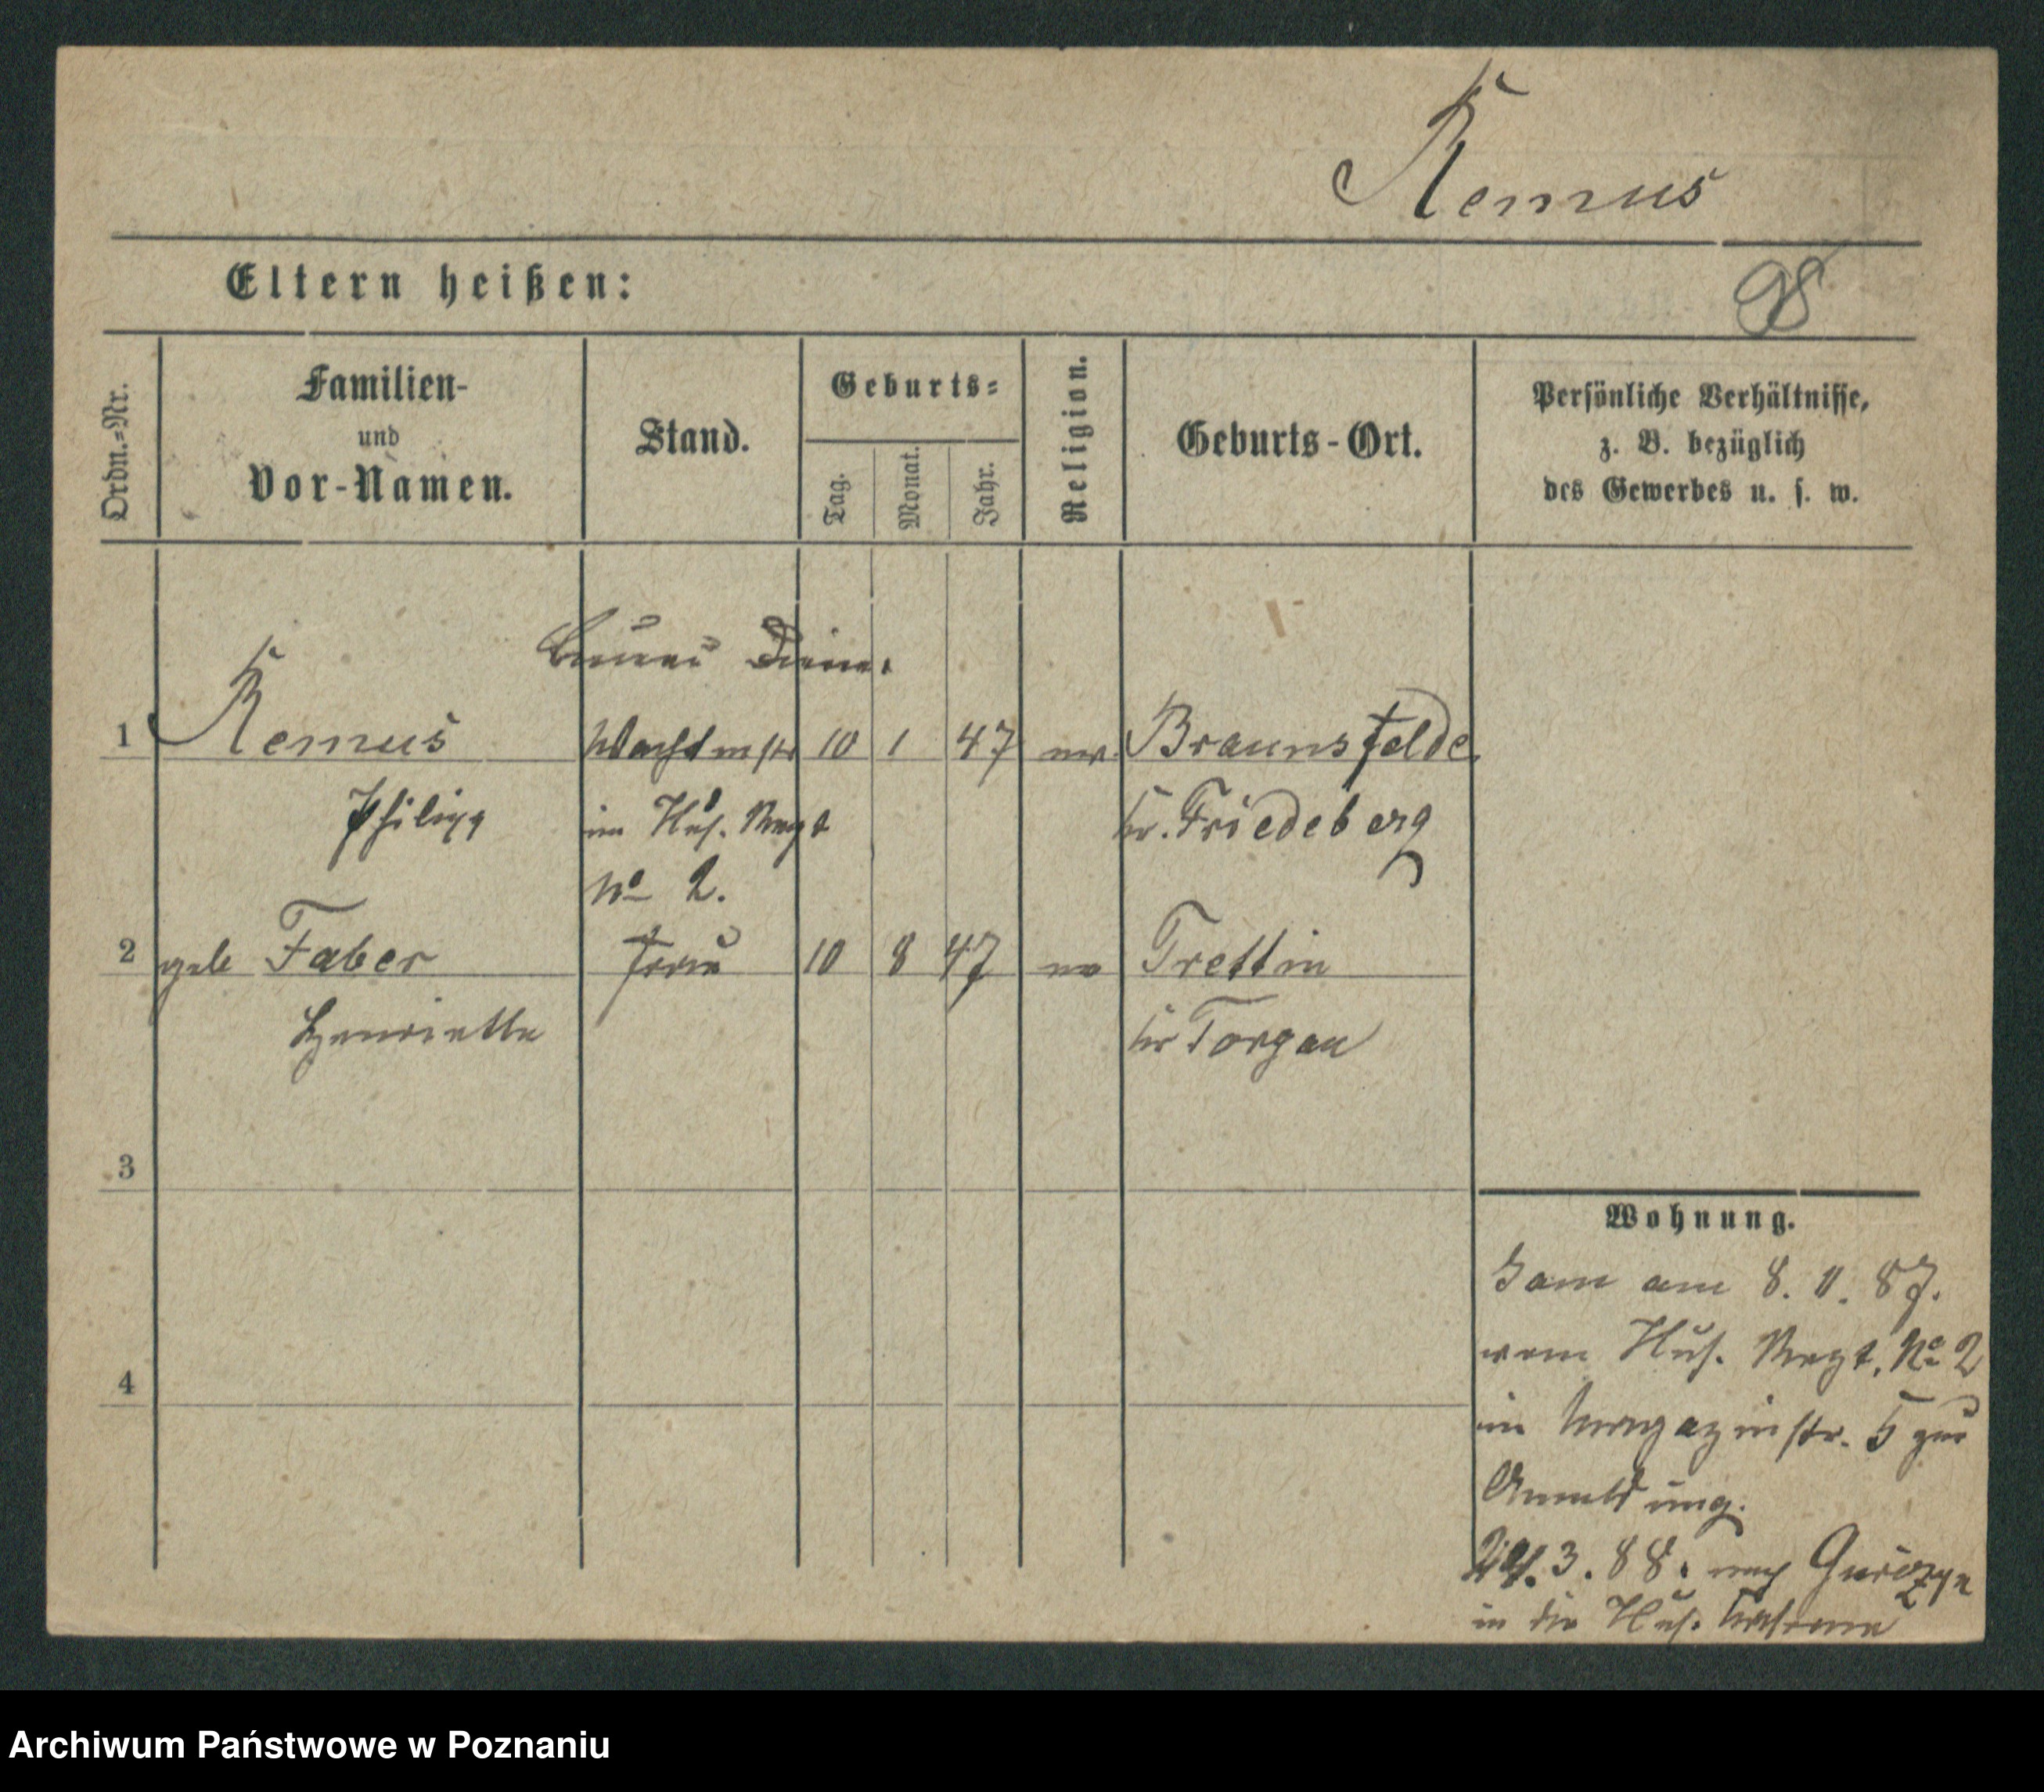 Remus
Eltern heißen:
98
Ordn.-Nr.
Familien-
und
Vor-Namen.
Stand.
Geburts-
Tag.
Monat.
Jahr.
Religion.
Geburts-Ort.
Persönliche Verhältnisse,
z. B. bezüglich
des Gewerbes u. s. w.
1 Remus Wachtmstr 10 1 47 ev. Braunsfelde
Philipp im Hus. Regt Kr. Friedeberg
No 2.
2 geb Faber Frau 10 8 47 ev Trettin
Henriette Kr Torgau
3
4
Wohnung.
Kam am 8. 11. 87.
vom Hus. Regt. No 2
in Magazinstr. 5 zur
Anmeldung.
3. 88. nach Gurczyn
in die Hus. Kaserne
Archiwum Państwowe w Poznaniu